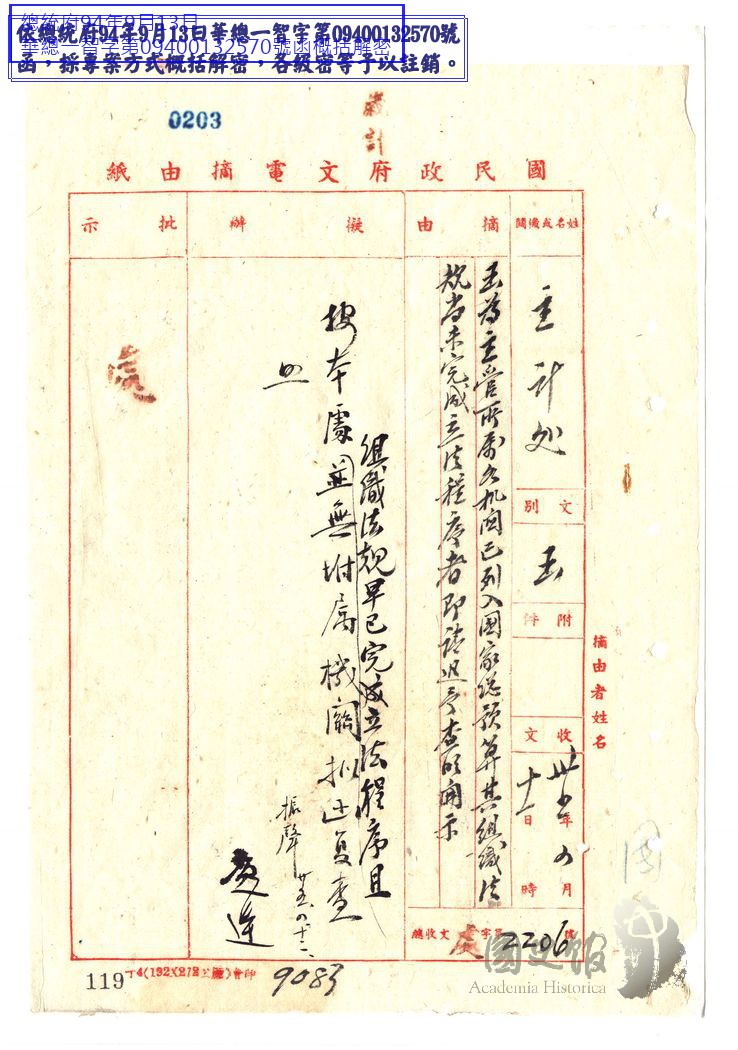 總統府94年9月13日
華總一智字第09400132570號函概括解密
依總統府94年9月13日華總一智字第09400132570號
函，採專案方式概括解密，各級密等予以註銷。
0203
國民政府文電摘由紙
姓名或機關
主計処
文別
附件
收文
卅五年四月
十一日時
摘由
為主管所屬各机関已列入國家総預算其組織法
規尚未完成立法程序者即請迅予查明開示
擬辦
按本處
組織法規早已完成立法程序且
並無坿屬機關拟迳复查
照
振聲
批示
摘由者姓名
總收文
字第2206號
119
9083
國史館
Academia Historica